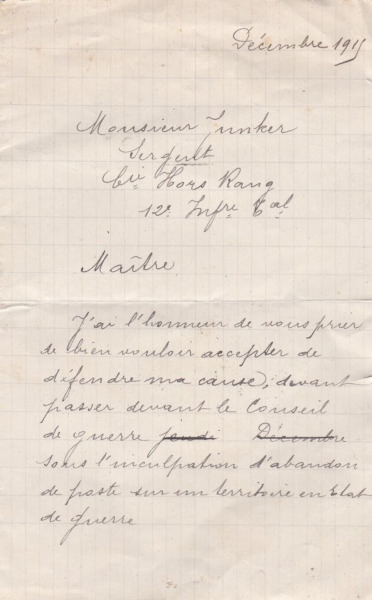 Décembre 1915
Monsieur Junker
Sergent
Cie Hors Rang
12e Infrie Cale
Maître
J'ai l'honneur de vous prier
de bien vouloir accepter de
défendre ma cause, devant
passer devant le Conseil
de guerre jeudi Décembre
sous l'inculpation d'abandon
de poste sur un territoire en Etat
de guerre